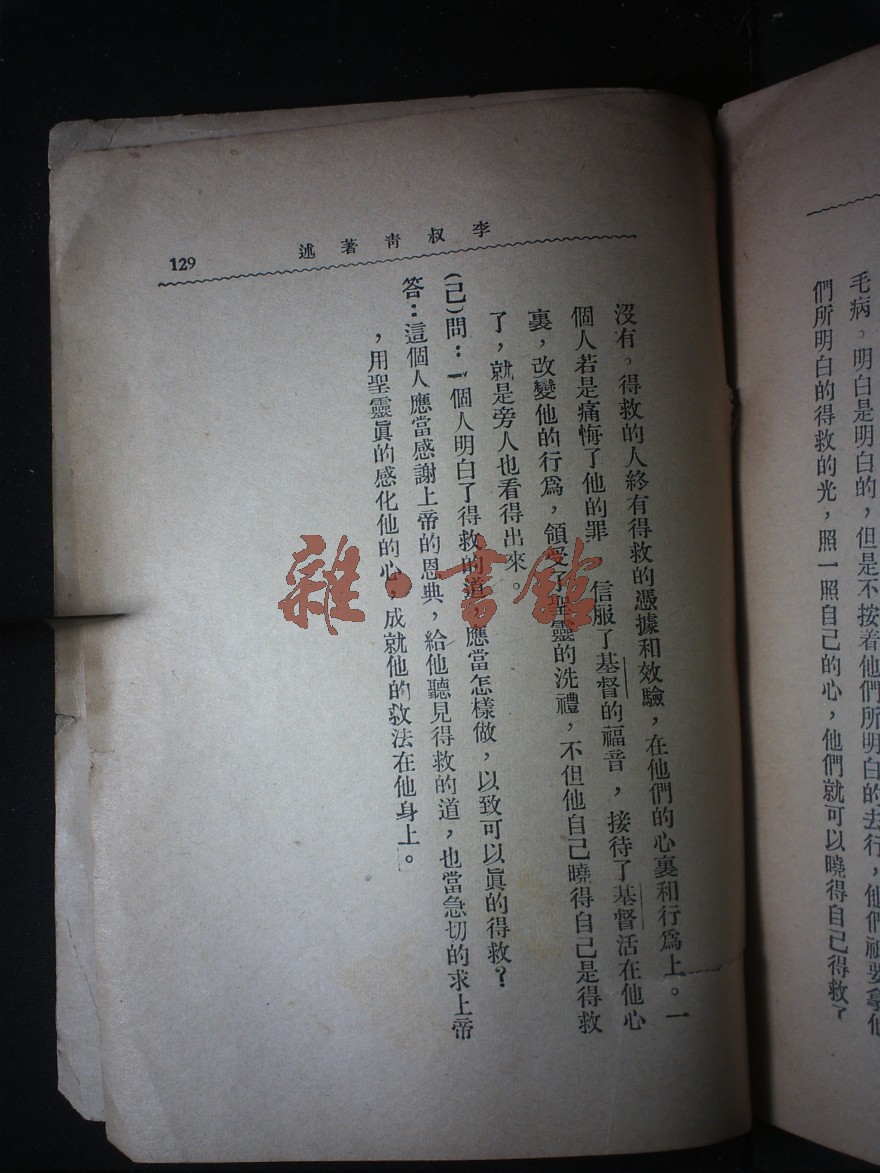 毛病。明白是明白的，但是不按着他們所明白的去行，他們祗要拿他
們所明白的得救的光，照一照自己的心，他們就可以曉得自己得救了
李叔青著述
129
沒有。得救的人終有得救的憑據和效驗，在他們的心裏和行爲上。一
個人若是痛悔了他的罪 信服了基督的福音，接待了基督活在他心
裏，改變他的行爲，領受了聖靈的洗禮，不但他自己曉得自己是得救
了，就是旁人也看得出來。
(己)問：一個人明白了得救的道 應當怎樣做，以致可以眞的得救？
答：這個人應當感謝上帝的恩典，給他聽見得救的道，也當急切的求上帝
，用聖靈眞的感化他的心，成就他的救法在他身上。
雜·書館